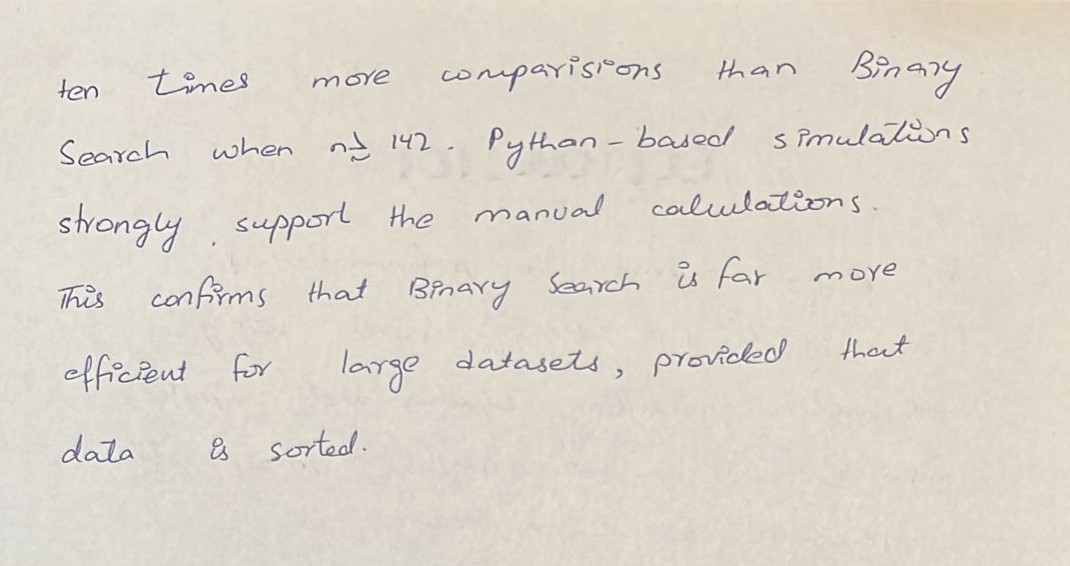 ten times more comparisions than Binary
Search when n≥ 142. Python-based simulations
strongly. support the manual calculations.
This confirms that Binary Search is far more
efficient for large datasets, provided that
data is sorted.